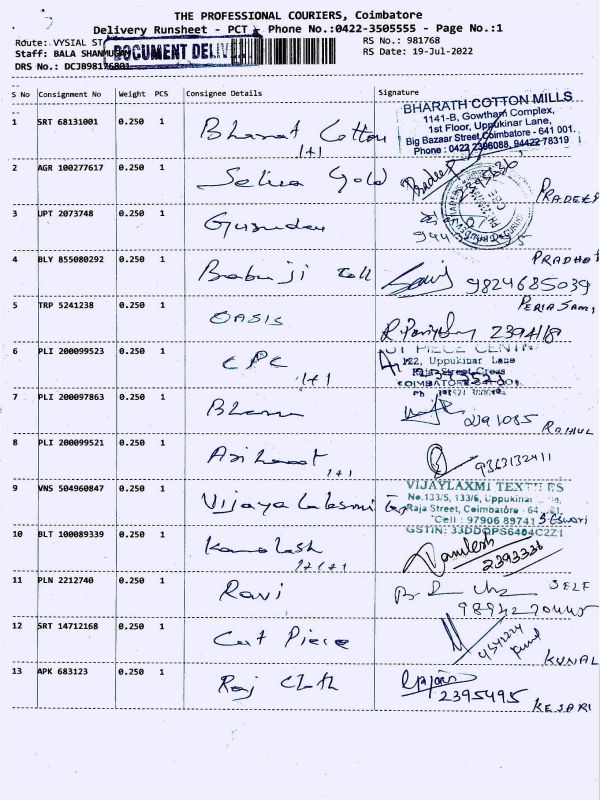 THE PROFESSIONAL COURIERS, Coimbatore
Delivery Runsheet - PCT - Phone No.:0422-3505555 - Page No.:1
Route: VYSIAL ST
RS No.: 981768
Staff: BALA SHANMUGAM
DOCUMENT DELIV
RS Date: 19-Jul-2022
DRS No.: DCJB98176801
S No Consignment No Weight PCS Consignee Details Signature
1 SRT 68131001 0.250 1 Bharat Cotton
1+1
BHARATH COTTON MILLS
1141-B, Gowtham Complex,
1st Floor, Uppukinar Lane,
Big Bazaar Street, Coimbatore - 641 001.
Phone : 0422 2396088, 94422 78319
2 AGR 100277617 0.250 1 Selva Gold
Pradeep
PRADEEP
3 UPT 2073748 0.250 1 Gurudev
4 BLY 855080292 0.250 1 Babuji Coll
9824685039
5 TRP 5241238 0.250 1 OASIS
PERIASAMI
2394118
6 PLI 200099523 0.250 1 CPC
1+1
122, Uppukinar Lane
Raja Street Cross
COIMBATORE-641 001.
7 PLI 200097863 0.250 1
2391085
RAHUL
8 PLI 200099521 0.250 1 Arihant
1+1
9363132411
9 VNS 504960847 0.250 1 Vijaya Lakesmi Tex
VIJAYLAXMI TEXTILES
No.133/5, 133/6, Uppukinar
Raja Street, Coimbatore - 64
Cell : 97906 89741
S. Eswari
GSTIN: 33DDQPS6404C2Z1
10 BLT 100089339 0.250 1 Kamalesh
1+1+1
Kamlesh
2393336
11 PLN 2212740 0.250 1 Ravi
SELF
12 SRT 14712168 0.250 1 Cut Piece
KUNAL
13 APK 683123 0.250 1 Raj Cloth
2395495
KESARI